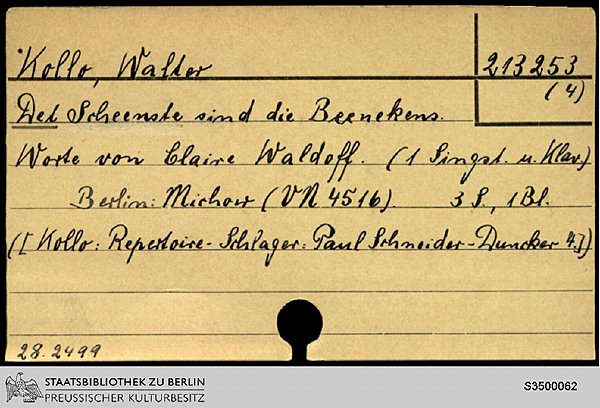 Kollo, Walter
213253
(4)
Det Scheenste sind die Beenekens.
Worte von Claire Waldoff. (1 Singst. u. Klav.)
Berlin: Michow (VN 4516). 3 S., 1 Bl.
([Kollo: Repertoire-Schlager: Paul Schneider-Duncker 4.])
28.2499
STAATSBIBLIOTHEK ZU BERLIN
PREUSSISCHER KULTURBESITZ
S3500062